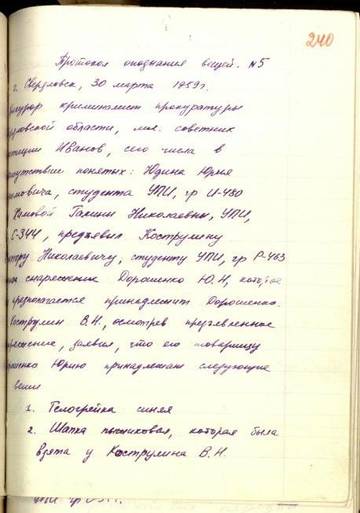 240
Протокол опознания вещей. №5
г. Свердловск, 30 марта 1959г.
криминалист прокуратуры
области, мл. советник
Иванов, сего числа в
понятых: Юдина Юрия
студента УПИ, гр И-480
Галины Николаевны, УПИ,
С-344, предъявил Кострулину
Николаевичу, студенту УПИ, гр Р-463
снаряжение Дорошенко Ю.Н, которое
принадлежит Дорошенко.
Кострулин В.Н., осмотрев предъявленное
заявил, что его товарищу
Юрию принадлежат следующие
вещи
1. Телогрейка синяя
2. Шапка пыжиковая, которая была
взята у Кострулина В.Н.